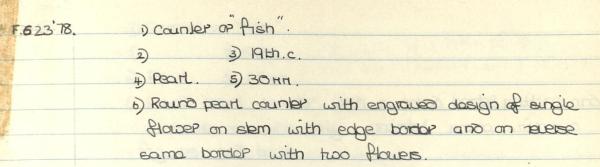 F.623'78. 1) Counter or "fish".
2) 3) 19th.c.
4) Pearl. 5) 30mm.
6) Round pearl counter with engraved design of single
flower on stem with edge border and on reverse
same border with two flowers.